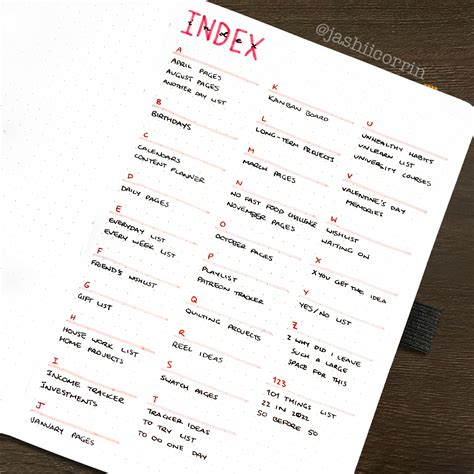 INDEX
index
@jashiicorrin
A
APRIL PAGES
AUGUST PAGES
ANOTHER DAY LIST
B
BIRTHDAYS
C
CALENDARS
CONTENT PLANNER
D
DAILY PAGES
E
EVERYDAY LIST
EVERY WEEK LIST
F
FRIEND'S WISHLIST
G
GIFT LIST
H
HOUSE WORK LIST
HOME PROJECTS
I
INCOME TRACKER
INVESTMENTS
J
JANUARY PAGES
K
KANBAN BOARD
L
LONG-TERM PROJECTS
M
MARCH PAGES
N
NO FAST FOOD CHALLENGE
NOVEMBER PAGES
O
OCTOBER PAGES
P
PLAYLIST
PATREON TRACKER
Q
QUILTING PROJECTS
R
REEL IDEAS
S
SWATCH PAGES
T
TRACKER IDEAS
TO TRY LIST
TO DO ONE DAY
U
UNHEALTHY HABITS
UNLEARN LIST
UNIVERSITY COURSES
V
VALENTINE'S DAY
MEMORIES
W
WISHLIST
WAITING ON
X
X YOU GET THE IDEA
Y
YES/NO LIST
Z
Z WHY DID I LEAVE
SUCH A LARGE
SPACE FOR THIS
123
101 THINGS LIST
22 IN 2022
50 BEFORE 50